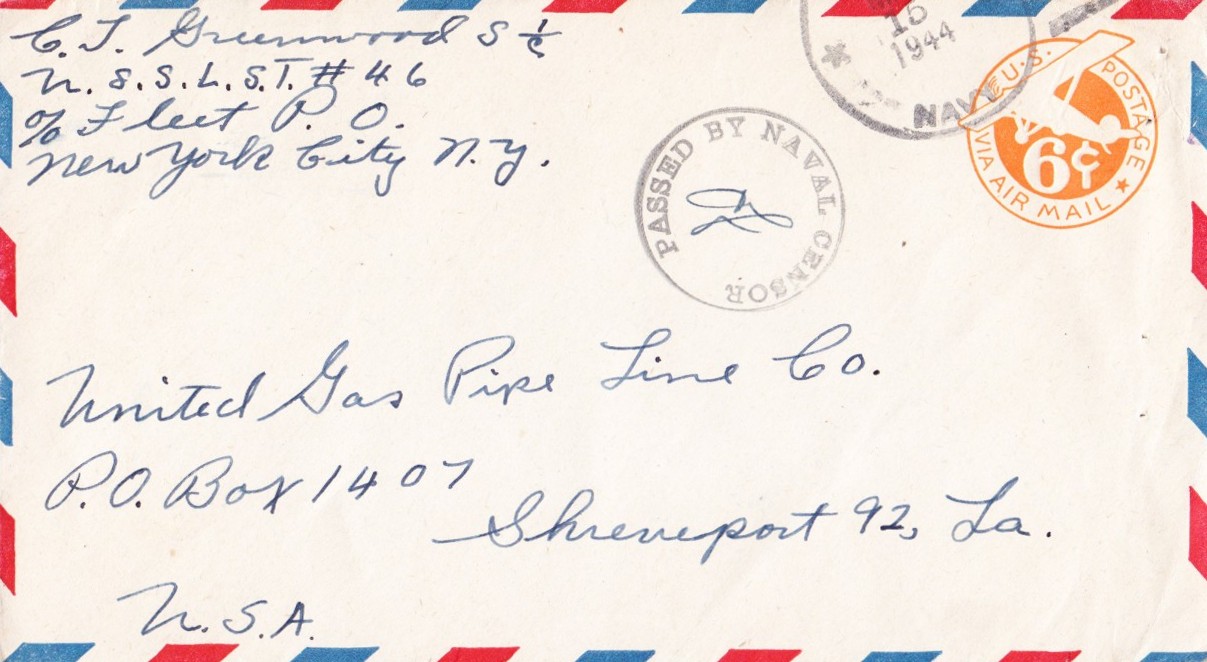 C. J. Greenwood S 1/c
U. S. S. L. S. T. # 46
c/o Fleet P. O.
New York City N. Y.
15
1944
NAVY
U.S. POSTAGE
6¢
VIA AIR MAIL
PASSED BY NAVAL CENSOR
United Gas Pipe Line Co.
P.O. Box 1407
Shreveport 92, La.
U.S.A.